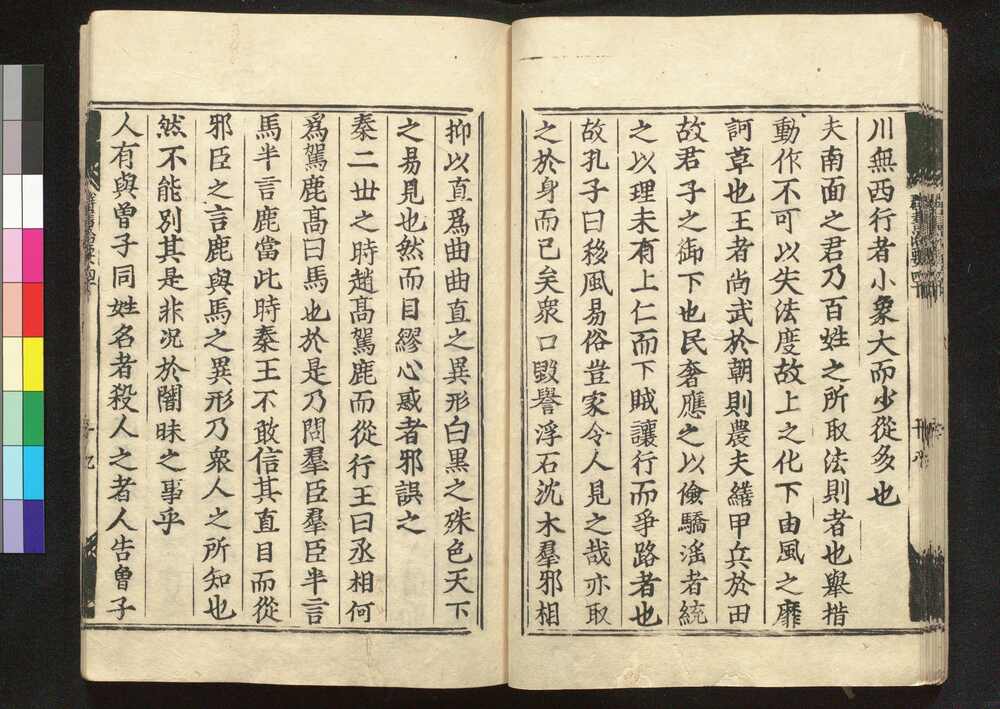 川無西行者小象大而少從多也
夫南面之君乃百姓之所取法則者也舉措
動作不可以失法度故上之化下由風之靡
草也王者尚武於朝則農夫繕甲兵於田
故君子之御下也民奢應之以儉驕淫者統
之以理未有上仁而下賊讓行而爭路者也
故孔子曰移風易俗豈家令人見之哉亦取
之於身而已矣衆口毀譽浮石沈木羣邪相
抑以直爲曲曲直之異形白黑之殊色天下
之易見也然而目繆心惑者邪誤之
秦二丗之時趙髙駕鹿而從行王曰丞相何
爲駕鹿髙曰馬也於是乃問羣臣羣臣半言
馬半言鹿當此時秦王不敢信其直目而從
邪臣之言鹿與馬之異形乃衆人之所知也
然不能別其是非况於闇昧之事乎
人有與曽子同姓名者殺人之者人告曽子